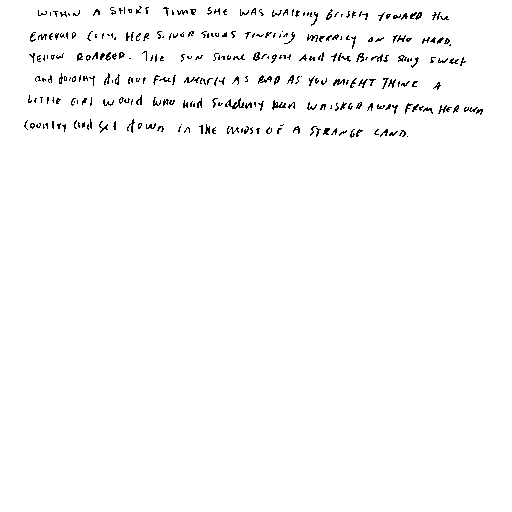 WITHIN A SHORT TIME SHE WAS WALKING BRISKLY TOWARD the
EMERALD CITY, HER SILVER SHOES TINKLING MERRILY ON THE HARD,
YELLOW ROADBED. THE SUN SHONE Bright And the Birds sang SWEET
and dorothy did not feel NEARLY AS BAD AS YOU MIGHT THINK A
LITTLE GIRL WOULD WHO HAD Suddenly been WHISKED AWAY FROM HER OWN
country and set down in THE MIDST OF A STRANGE LAND.